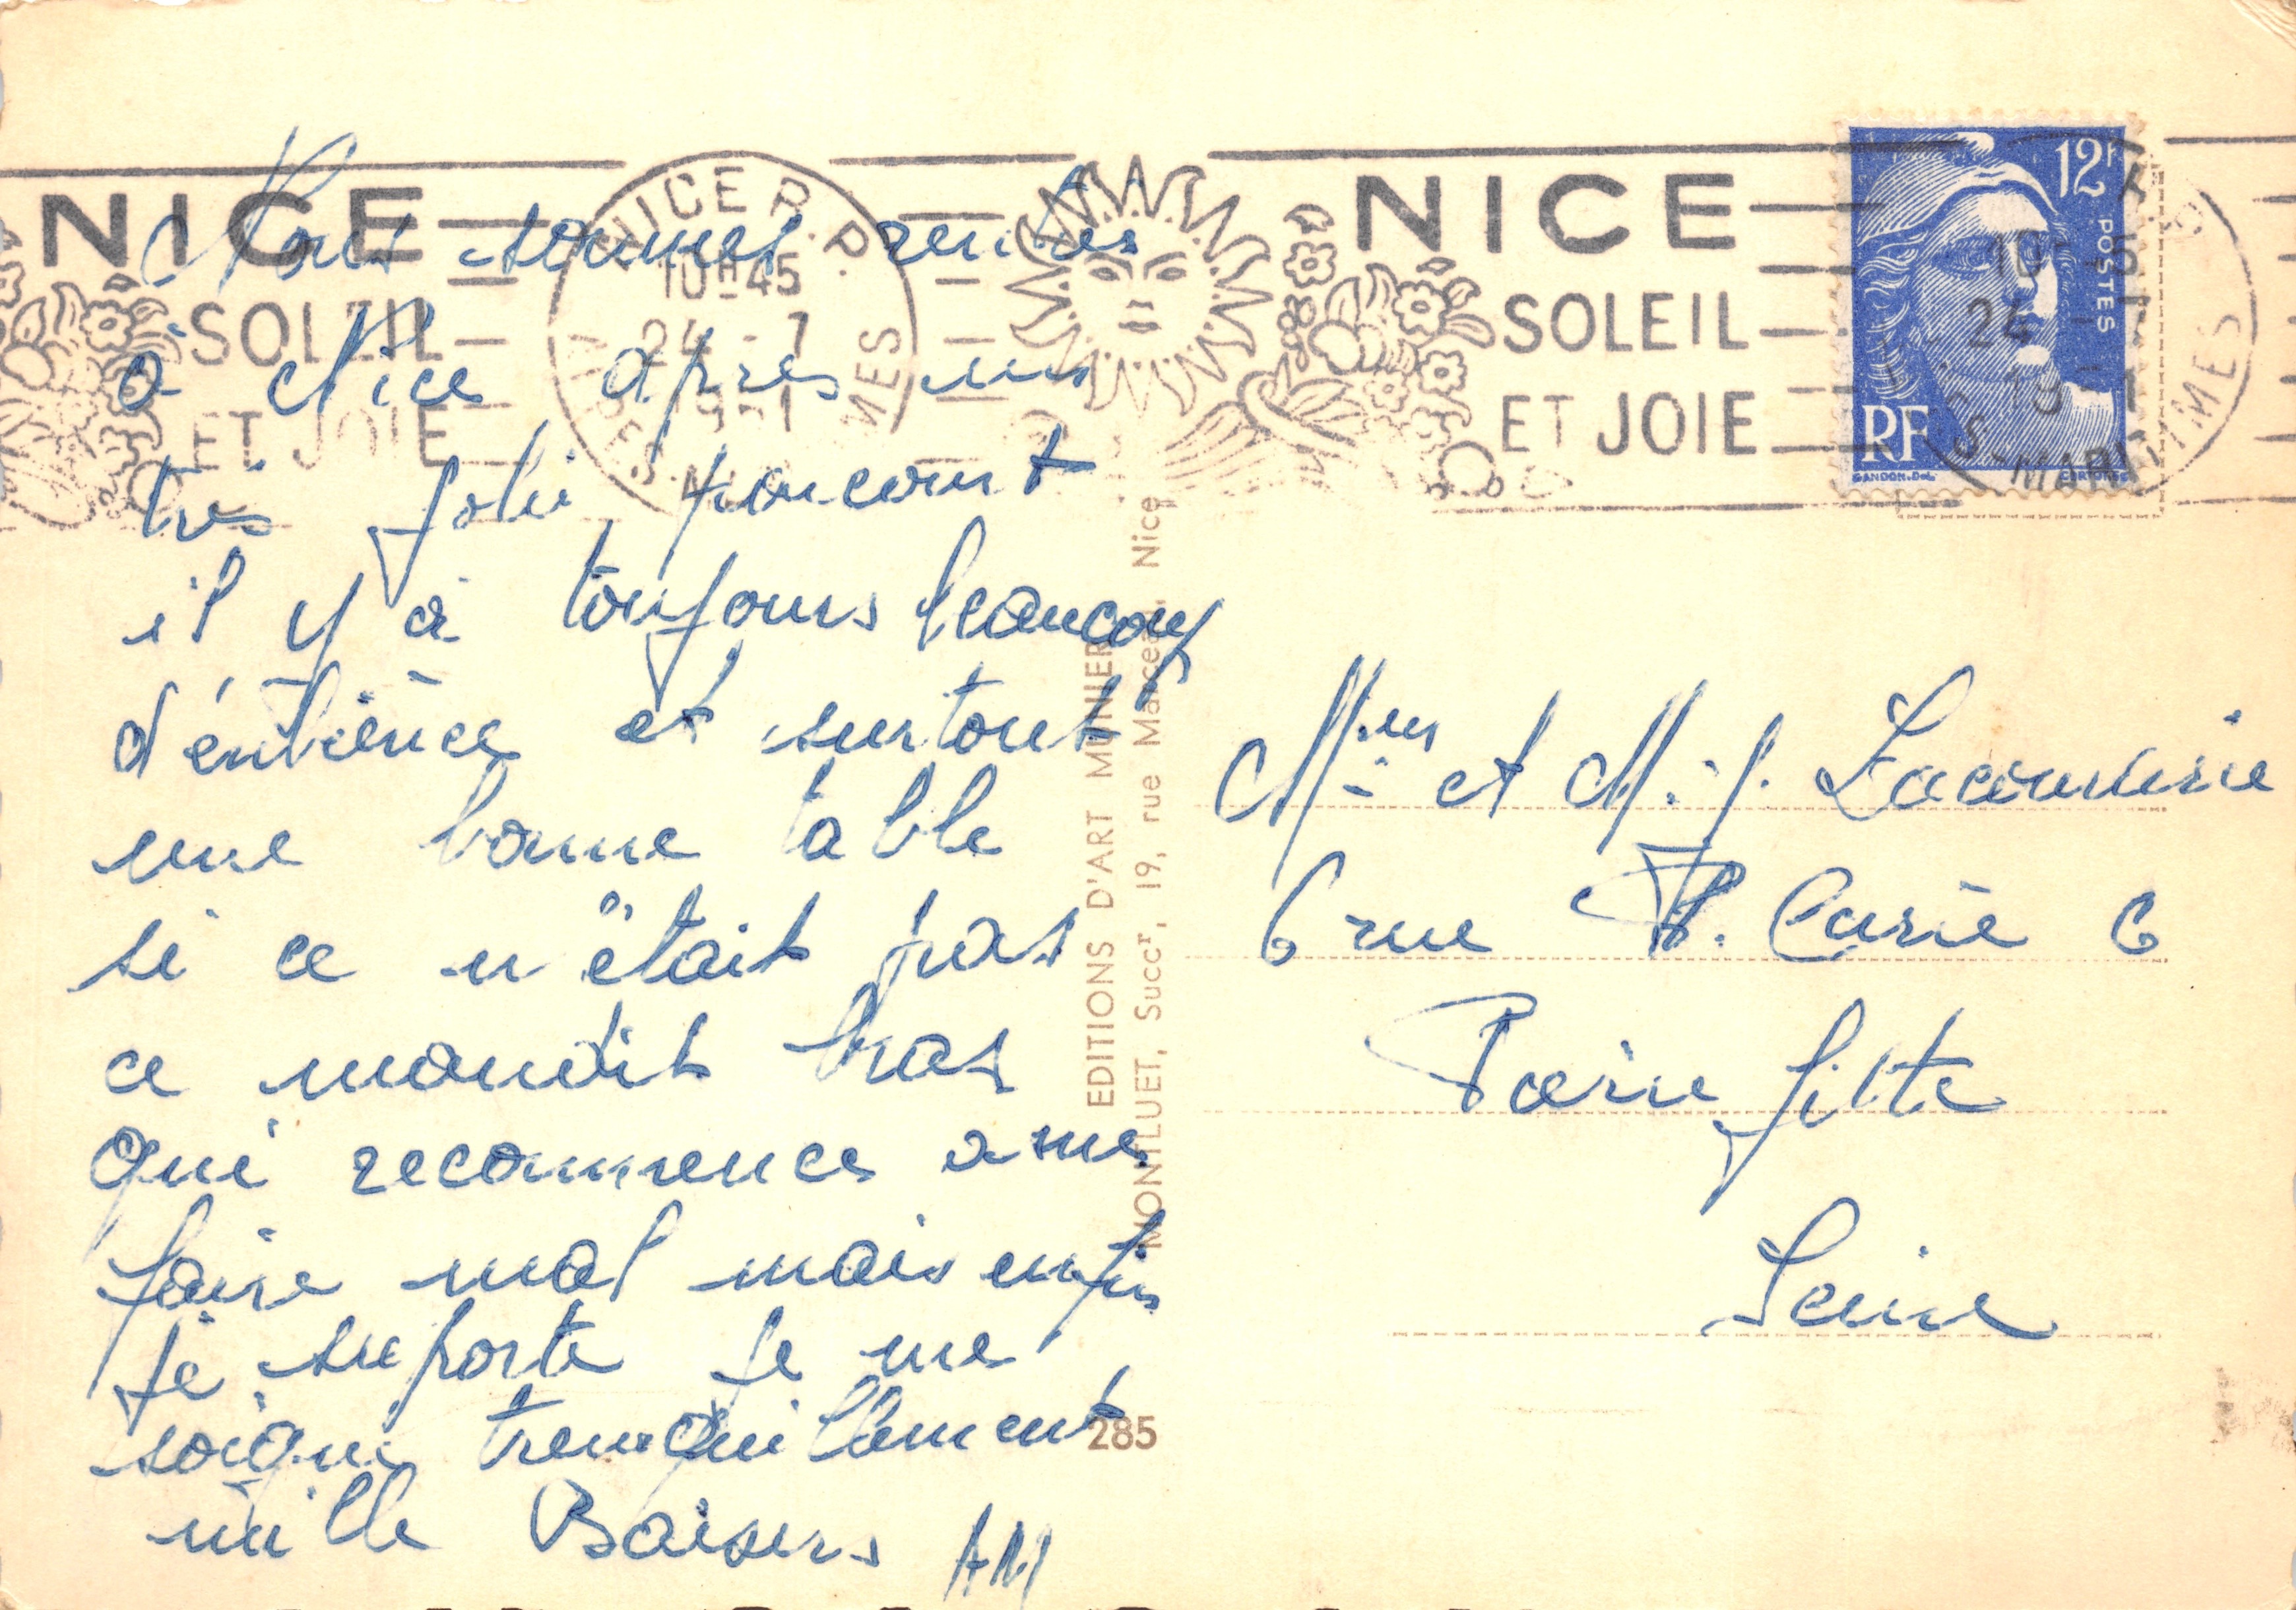 NICE
SOLEIL
ET JOIE
NICE R.P.
10H45
24-7
1951
NICE
SOLEIL
ET JOIE
12F
POSTES
RF
GANDON.Del.
Nous sommes rentrés
à Nice après un
très joli parcourt
il y à toujours beaucoup
d'enbience et surtout
une bonne table
si ce n'était pas
ce maudit bras
qui recommence a me
faire mal mais enfin
je suporte je me
soigne tranquillement
mille Baisers AM
EDITIONS D'ART MUNIER
MONTLUET, Succr, 19, rue Marceau, Nice
285
et M. J.
6 rue P. Curie 6
Pierrefitte
Seine